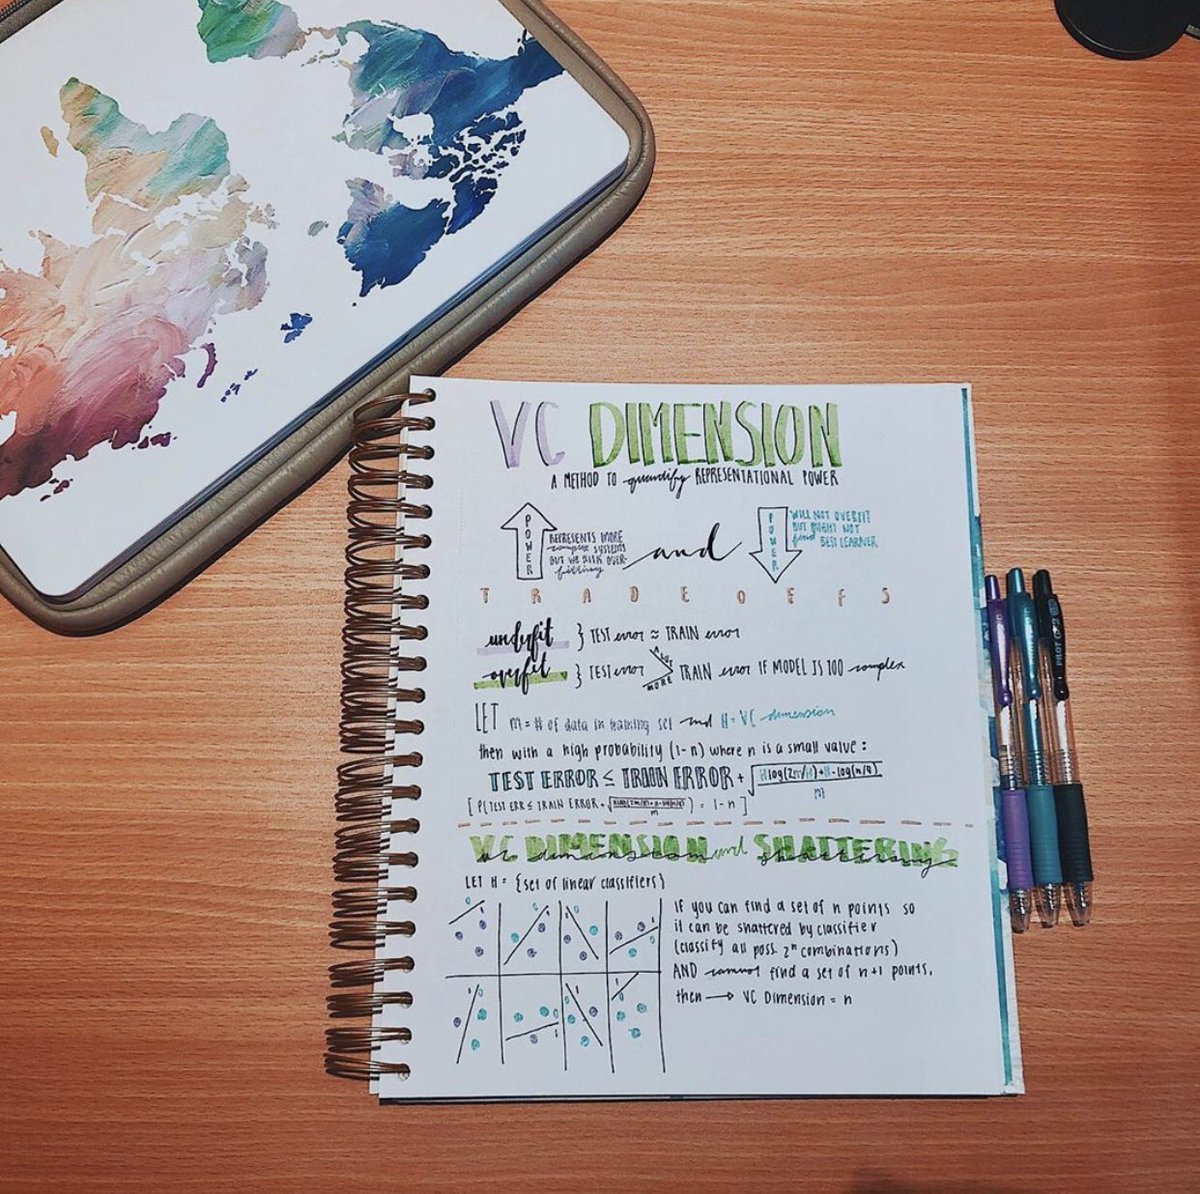 VC DIMENSION
A METHOD TO quantify REPRESENTATIONAL POWER
POWER
REPRESENTS MORE
complex SYSTEMS
BUT WE RISK OVER-
fitting
and
POWER
WILL NOT OVERFIT
BUT MIGHT NOT
find BEST LEARNER
TRADEOFFS
underfit } TEST error ≈ TRAIN error
overfit } TEST error > TRAIN error IF MODEL IS TOO complex
MORE
LET m = # of data in training set and H = VC dimension
then with a high probability (1-n) where n is a small value:
TEST ERROR ≤ TRAIN ERROR + √ H log(2m/H)+H-log(n/4)
m
[ P(TEST ERR ≤ TRAIN ERROR + √ ) = 1-n ]
m
VC DIMENSION and SHATTERING
vc dimension shattering
LET H = {set of linear classifiers}
If you can find a set of n points so
it can be shattered by classifier
(classify all poss. 2ⁿ combinations)
AND cannot find a set of n+1 points,
then → VC Dimension = n
PILOT G-2